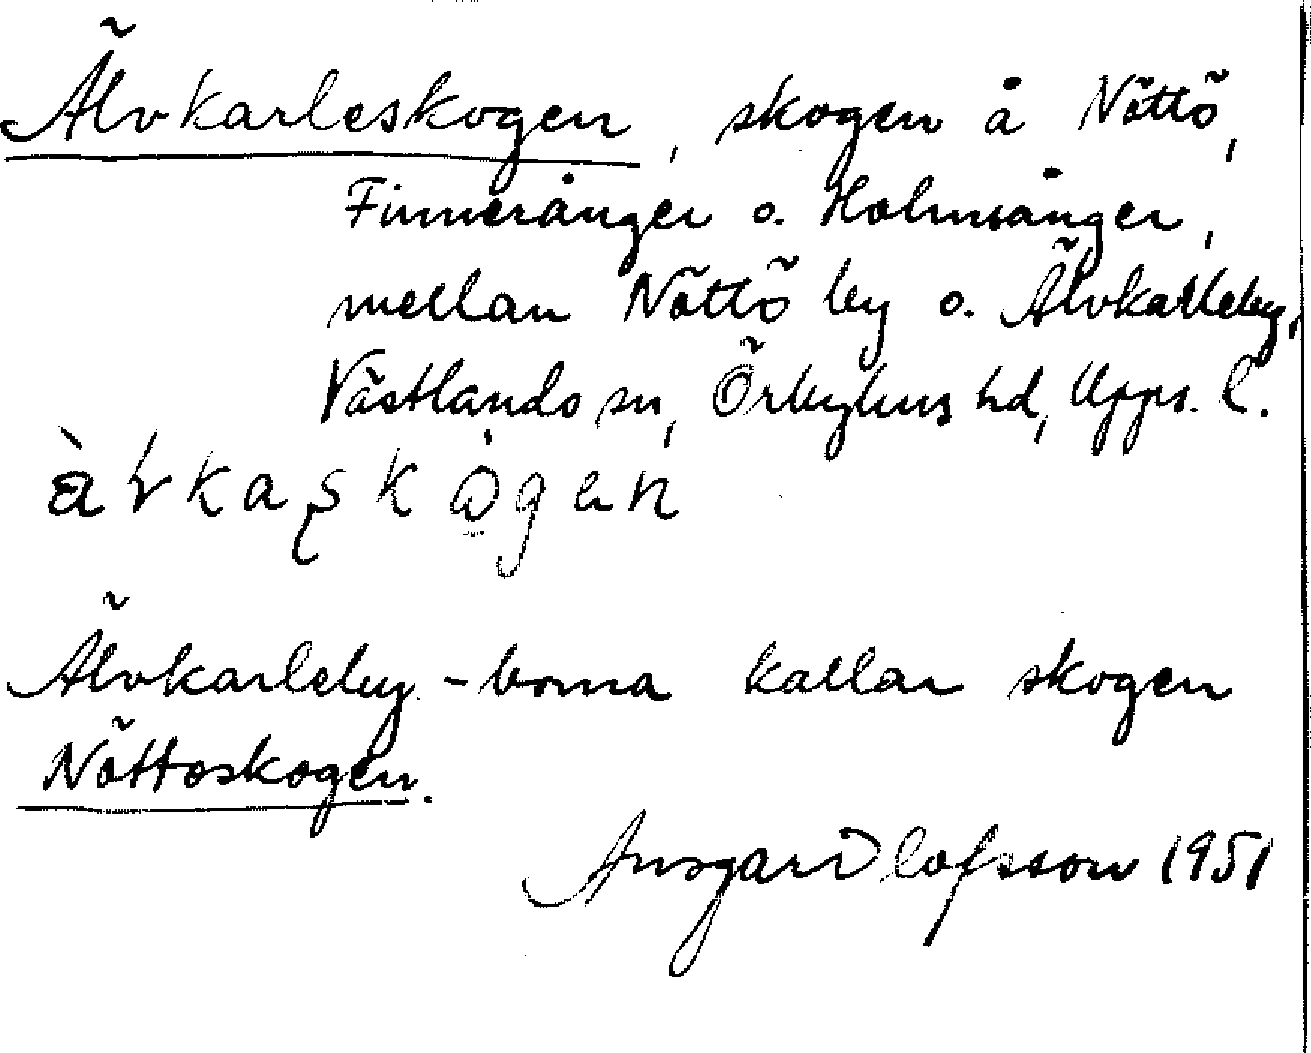 Älvkarleskogen, skogen å Nöttö,
Finnerånger o. Holmsånger,
mellan Nöttö by o. Älvkarleby,
Västlands sn, Örbyhus hd, Upps. l.
Älvkarleby-borna kallar skogen
Nöttöskogen.
Ansgar Olofsson 1951